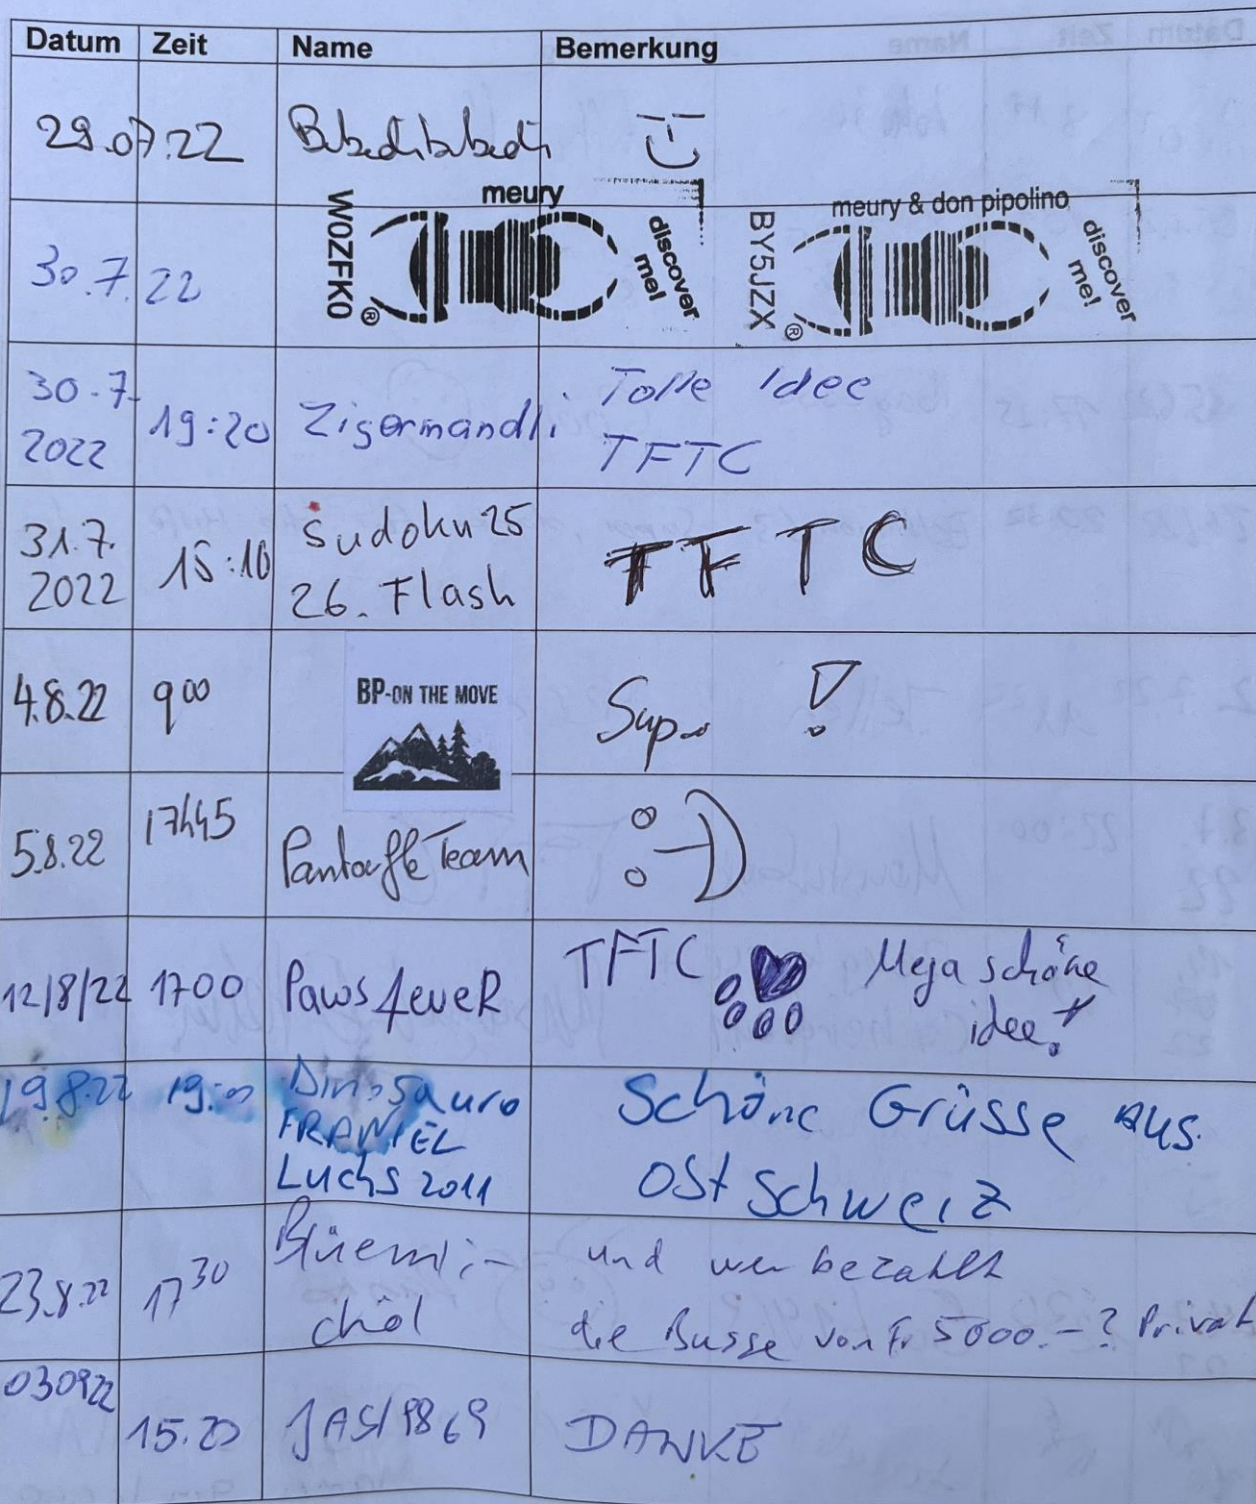 Datum Zeit Name Bemerkung
29.07.22
meury
W0ZFK0
discover
me!
®
meury & don pipolino
BY5JZX
discover
me!
®
30.7.22
30.7.
2022
19:20
Zigermandli
Tolle Idee
TFTC
31.7.
2022
15:10
Sudoku25
26. Flash
TFTC
4.8.22
9⁰⁰
BP-ON THE MOVE
!
5.8.22
17h45
Team
:-)
12/8/22
1700
Paws4eveR
TFTC
Mega schöne
idee!
19.8.22
19:00
Dinosauro
FRANIEL
Luchs2011
Schöne Grüsse aus
Ostschweiz
23.8.22
17³⁰
Blüemli-
chöl
und wer bezahlt
die Busse von Fr 5000.-? Privat
030922
15.20
JASI9869
DANKE